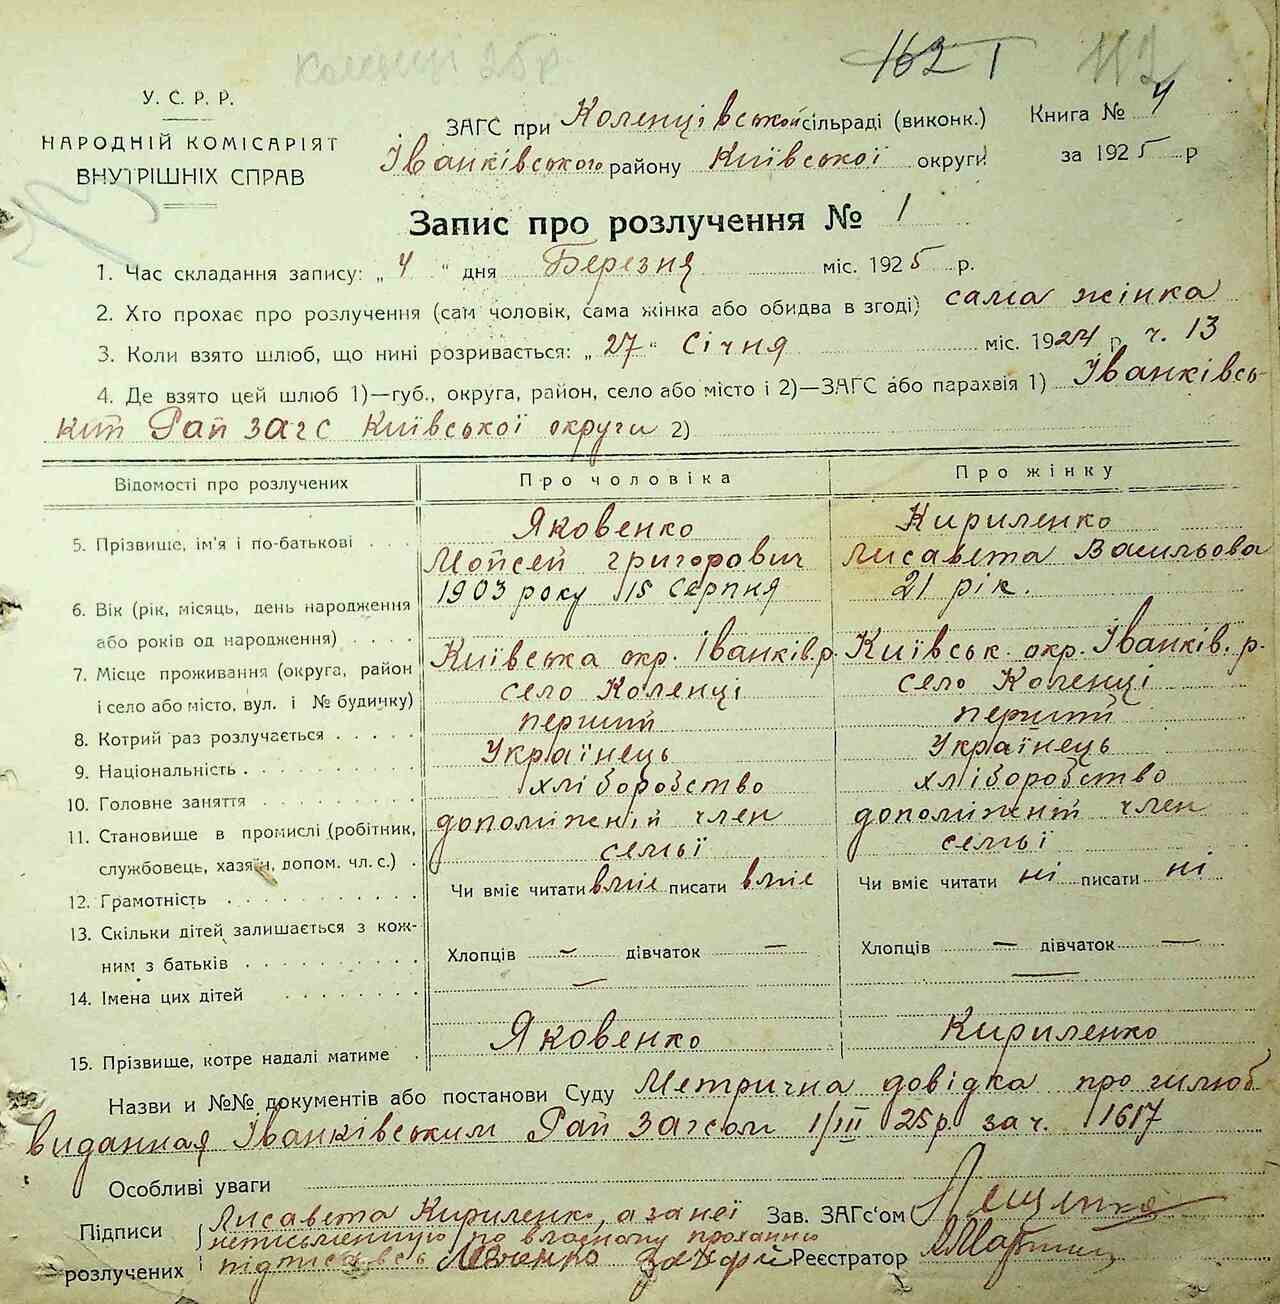 Коленці 25 р
162 Т 112
У. С. Р. Р.
НАРОДНІЙ КОМІСАРІЯТ
ВНУТРІШНІХ СПРАВ
ЗАГС при Коленцівській сільраді (виконк.) Книга № 4
Іванківського району Київської округи за 1925 р
Запис про розлучення № 1
1. Час складання запису: „ 4 “ дня Березня міс. 1925 р.
2. Хто прохає про розлучення (сам чоловік, сама жінка або обидва в згоді) сама жінка
3. Коли взято шлюб, що нині розривається: „ 27 “ Січня міс. 1924 р. ч. 13
4. Де взято цей шлюб 1)—губ., округа, район, село або місто і 2)—ЗАГС або парахвія 1) Іванківсь-
кий Рай загс Київської округи 2)
Відомості про розлучених Про чоловіка Про жінку
5. Прізвище, ім'я і по-батькові Яковенко Мойсей Григорович Кириленко Лисавета Васильова
6. Вік (рік, місяць, день народження
або років од народження) 1903 року 15 Серпня 21 рік.
7. Місце проживання (округа, район
і село або місто, вул. і № будинку) Київська окр. Іванків.р. село Коленці Київськ. окр. Іванків. р. село Коленці
8. Котрий раз розлучається перший перший
9. Національність Українець Українець
10. Головне заняття хліборобство хліборобство
11. Становище в промислі (робітник,
службовець, хазяїн, допом. чл. с.) дополіжній член семьї дополіжний член семьї
12. Грамотність Чи вміє читати вміє писати вміє Чи вміє читати ні писати ні
13. Скільки дітей залишається з кож-
ним з батьків Хлопців — дівчаток — Хлопців — дівчаток —
14. Імена цих дітей — —
15. Прізвище, котре надалі матиме Яковенко Кириленко
Назви и №№ документів або постанови Суду Метрична довідка про шлюб
виданная Іванківським Рай Загсом 1/III 25р. за ч. 1617
Особливі уваги
Підписи Лисавета Кириленко, а за неї Зав. ЗАГс'ом Лещенко
неписьменную по власному проханню
розлучених підписавсь Реєстратор